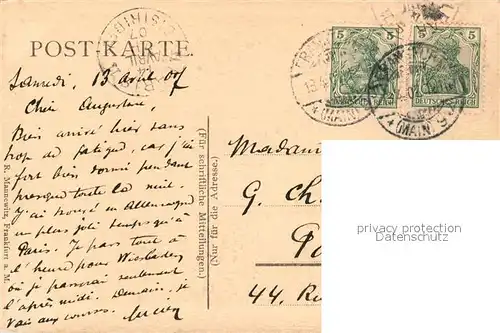 POST-KARTE.
Samedi, 13 avril 07
Chère Augustine,
Bien arrivé hier sans
trop de fatigue, car j'ai
fort bien dormi pendant
presque toute la nuit.
J'ai trouvé en Allemagne
un plus joli temps qu'à
Paris. Je pars tout à
l'heure pour Wiesbaden
où je passerai seulement
l'après midi. Demain, je
vais aux courses.
Lucien
R. Mannewitz, Frankfurt a. M.
(Für schriftliche Mitteilungen.)
(Nur für die Adresse.)
5 5
DEUTSCHES REICH
(MAIN)
PARIS
AVRIL
07
DISTRIB
Madam
G. Ch
Pa
44. Ru
privacy protection
Datenschutz